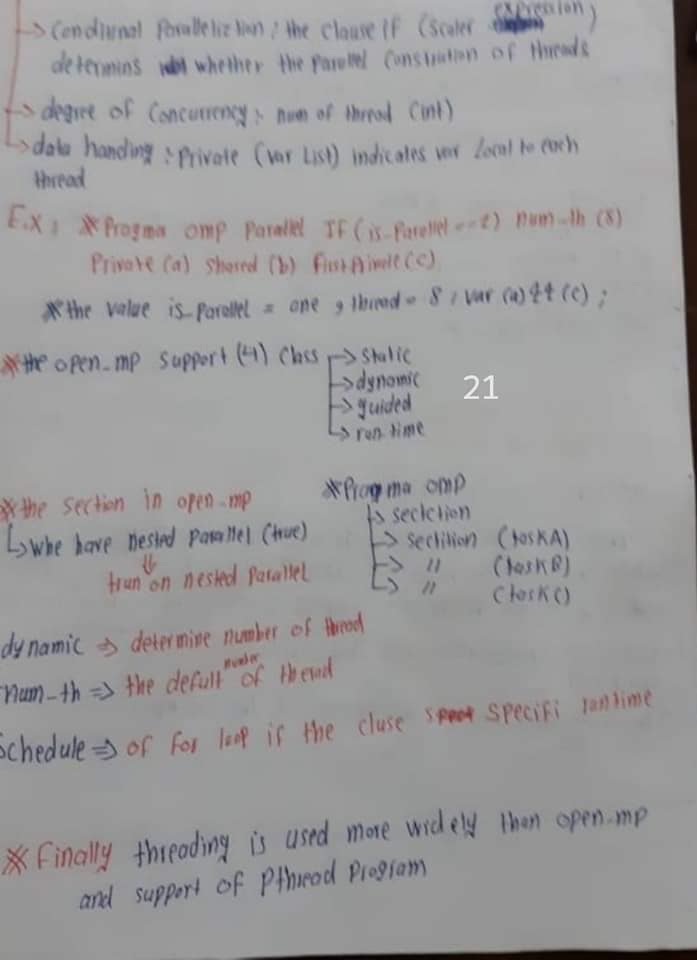 → Conditional Parallelization : the clause if (scaler expression)
determins whether the Parallel Constration of threads
→ degree of Concurrency : num of thread (int)
→ data handing : Private (var List) indicates var Local to each
thread
Ex : * Progma omp Parallel IF (is-Parallel == 1) num-th (8)
Private (a) shared (b) first Private (c)
* the value is-Parallel = one , thread = 8 , var (a) && (c) ;
* the open-mp support (4) class → static
→ dynamic
21
→ guided
→ run-time
* the section in open-mp
* Progma omp
↳ sectction
↳ whe have nested Parallel (true)
→ sectition (taskA)
⇓
→ // (taskB)
trun on nested Parallel
→ // (taskC)
dynamic ⇒ determine number of thread
num-th ⇒ the defult number of theread
Schedule ⇒ of for loop if the cluse specifi runtime
* Finally threading is used more widely than open-mp
and support of Pthread Program